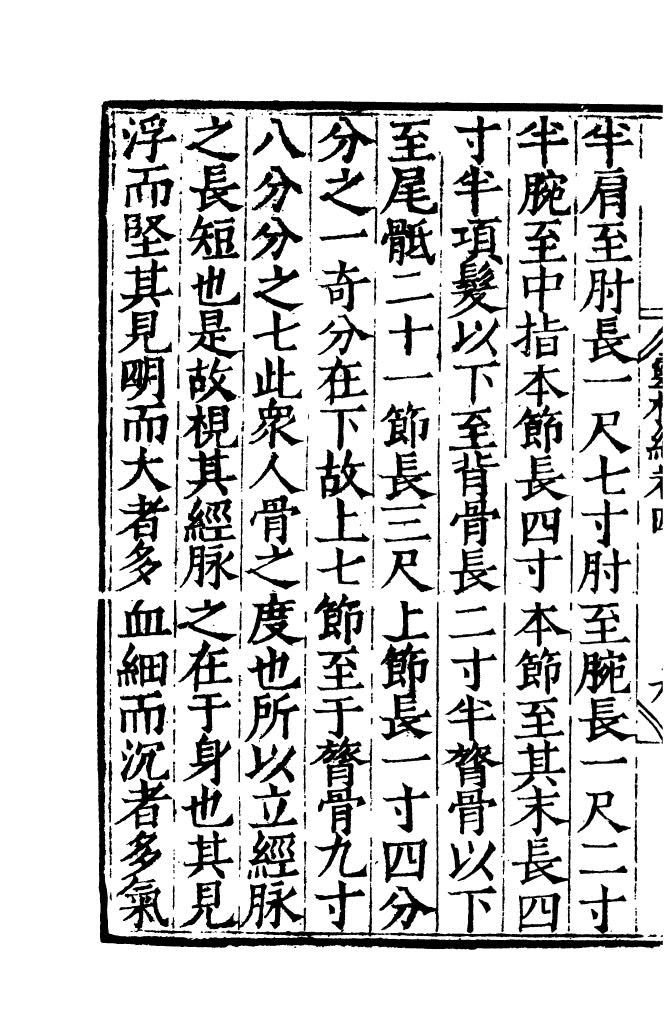 半肩至肘長一尺七寸肘至腕長一尺二寸
半腕至中指本節長四寸本節至其末長四
寸半項髮以下至背骨長二寸半膂骨以下
至尾骶二十一節長三尺上節長一寸四分
分之一奇分在下故上七節至于膂骨九寸
八分分之七此衆人骨之度也所以立經脉
之長短也是故視其經脉之在于身也其見
浮而堅其見明而大者多血細而沉者多氣